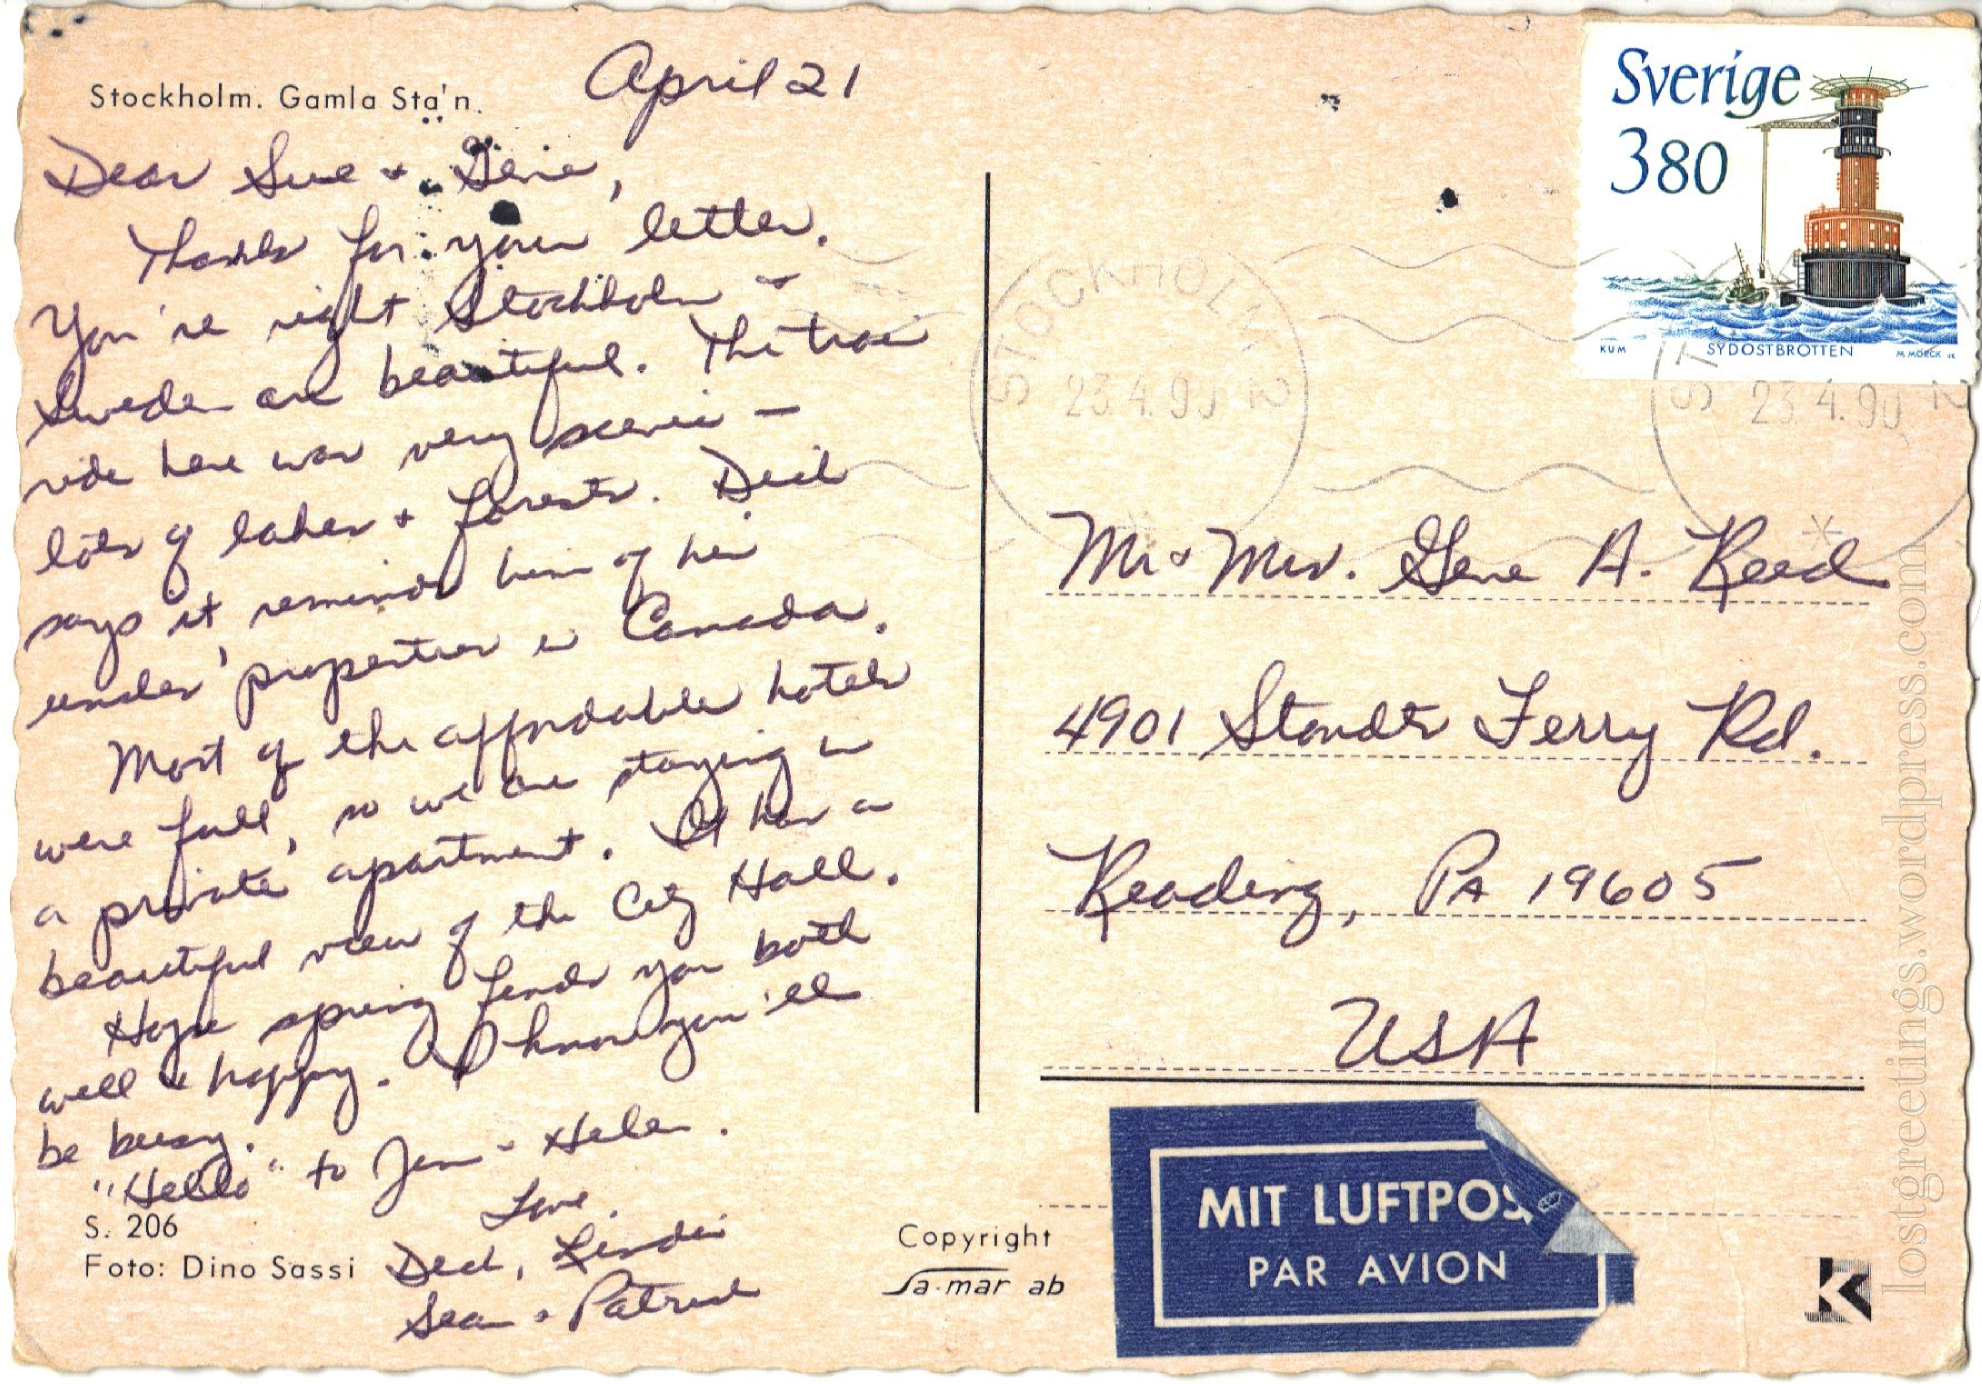 Stockholm. Gamla Sta'n.
April 21
Dear Sue + Gene,
Thanks for your letter.
You're right Stockholm +
Sweden are beautiful. The train
ride here was very scenic –
lots of lakes + forests.
says it reminds him of his
uncles' properties in Canada.
Most of the affordable hotels
were full, so we are staying in
a private apartment. It has a
beautiful view of the City Hall.
Hope spring finds you both
well + happy. I know you'll
be busy.
"Hello" to Jim + Helen.
Love,
Linda
Sean + Patrick
S. 206
Foto: Dino Sassi
Copyright
Sa-mar ab
Sverige
380
KUM SYDOSTBROTTEN M MÖRCK sc
STOCKHOLM 2
23.4.90
STOCKHOLM 2
23.4.90
Mr + Mrs. Gene A. Reed
4901 Stoudts Ferry Rd.
Reading, PA 19605
USA
MIT LUFTPOST
PAR AVION
K
lostgreetings.wordpress.com